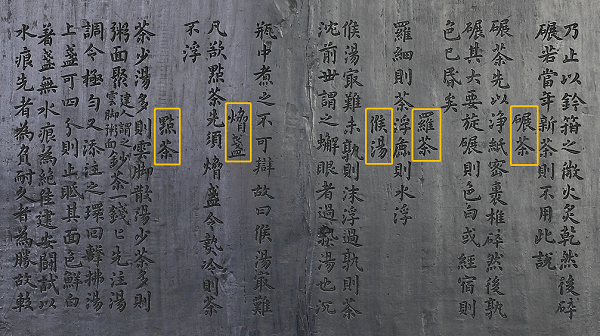 乃止以鈐箝之微火炙乾然後碎
碾若當年新茶則不用此說
碾茶
碾茶先以淨紙密裹椎碎然後孰
碾其大要旋碾則色白或經宿則
色已昏矣
羅茶
羅細則茶浮麁則水浮
候湯
候湯冣難未孰則沫浮過孰則茶
沈前世謂之蠏眼者過孰湯也沉
瓶中煮之不可辯故曰候湯冣難
熁盞
凡欲點茶先須熁盞令熱冷則茶
不浮
點茶
茶少湯多則雲脚散湯少茶多則
粥面聚建人謂之雲脚粥面鈔茶一錢匕先注湯
調令極勻又添注之環回擊拂湯
上盞可四分則止眡其面色鮮白
著盞無水痕為絕佳建安鬬試以
水痕先者為負耐久者為勝故較